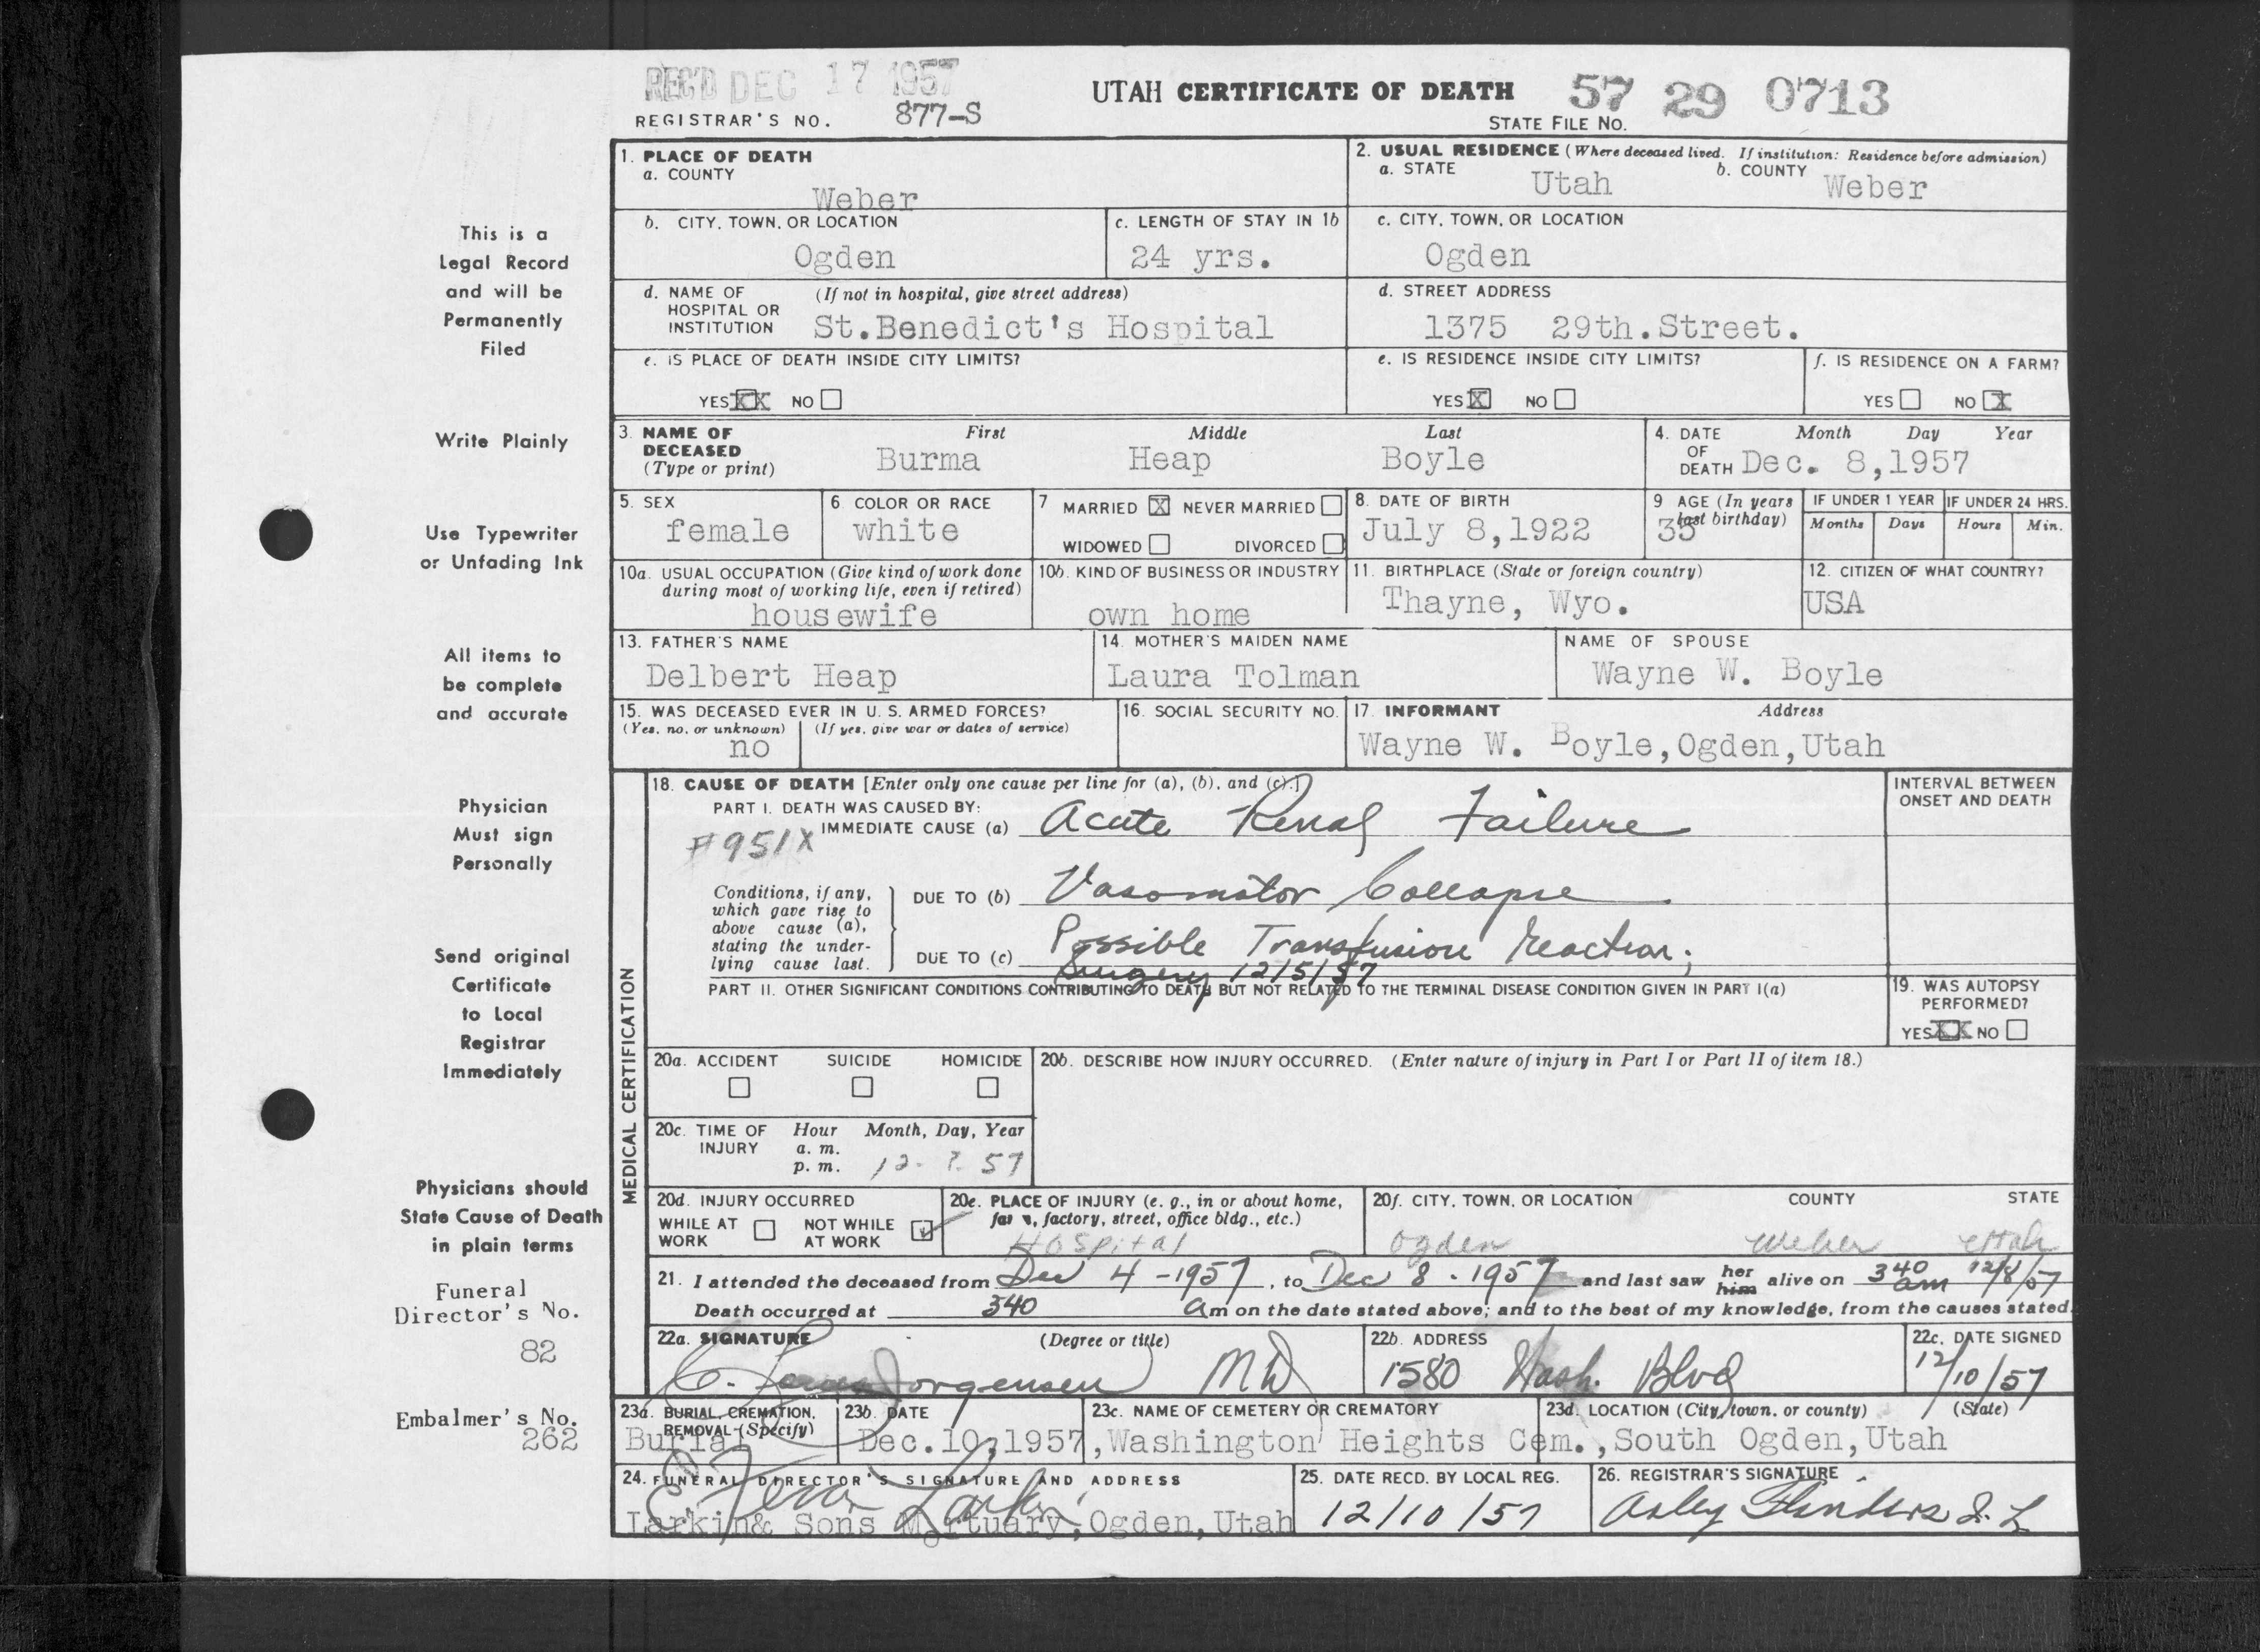 REC'D DEC 17 1957
REGISTRAR'S NO. 877-S
UTAH CERTIFICATE OF DEATH
57 29 0713
STATE FILE NO.
This is a
Legal Record
and will be
Permanently
Filed
Write Plainly
Use Typewriter
or Unfading Ink
All items to
be complete
and accurate
Physician
Must sign
Personally
Send original
Certificate
to Local
Registrar
Immediately
Physicians should
State Cause of Death
in plain terms
Funeral
Director's No.
82
Embalmer's No.
262
1. PLACE OF DEATH
a. COUNTY
Weber
2. USUAL RESIDENCE (Where deceased lived. If institution: Residence before admission)
a. STATE Utah b. COUNTY Weber
b. CITY, TOWN, OR LOCATION
Ogden
c. LENGTH OF STAY IN 1b
24 yrs.
c. CITY, TOWN, OR LOCATION
Ogden
d. NAME OF HOSPITAL OR INSTITUTION (If not in hospital, give street address)
St.Benedict's Hospital
d. STREET ADDRESS
1375 29th.Street.
e. IS PLACE OF DEATH INSIDE CITY LIMITS?
YES XX NO
e. IS RESIDENCE INSIDE CITY LIMITS?
YES X NO
f. IS RESIDENCE ON A FARM?
YES NO X
3. NAME OF DECEASED (Type or print)
First Middle Last
Burma Heap Boyle
4. DATE OF DEATH Month Day Year
Dec. 8,1957
5. SEX
female
6 COLOR OR RACE
white
7 MARRIED X NEVER MARRIED
WIDOWED DIVORCED
8. DATE OF BIRTH
July 8,1922
9 AGE (In years last birthday)
35
IF UNDER 1 YEAR IF UNDER 24 HRS.
Months Days Hours Min.
10a. USUAL OCCUPATION (Give kind of work done
during most of working life, even if retired)
housewife
10b. KIND OF BUSINESS OR INDUSTRY
own home
11. BIRTHPLACE (State or foreign country)
Thayne, Wyo.
12. CITIZEN OF WHAT COUNTRY?
USA
13. FATHER'S NAME
Delbert Heap
14. MOTHER'S MAIDEN NAME
Laura Tolman
NAME OF SPOUSE
Wayne W. Boyle
15. WAS DECEASED EVER IN U. S. ARMED FORCES?
(Yes, no, or unknown) (If yes, give war or dates of service)
no
16. SOCIAL SECURITY NO.
17. INFORMANT Address
Wayne W. Boyle,Ogden,Utah
MEDICAL CERTIFICATION
18. CAUSE OF DEATH [Enter only one cause per line for (a), (b), and (c).]
PART I. DEATH WAS CAUSED BY:
IMMEDIATE CAUSE (a) Acute Renal Failure
#951X
Conditions, if any,
which gave rise to
above cause (a),
stating the under-
lying cause last.
DUE TO (b) Vasomotor Collapse
DUE TO (c) Possible Transfusion Reaction;
Surgery 12/5/57
INTERVAL BETWEEN
ONSET AND DEATH
PART II. OTHER SIGNIFICANT CONDITIONS CONTRIBUTING TO DEATH BUT NOT RELATED TO THE TERMINAL DISEASE CONDITION GIVEN IN PART I(a)
19. WAS AUTOPSY
PERFORMED?
YES XX NO
20a. ACCIDENT SUICIDE HOMICIDE
20b. DESCRIBE HOW INJURY OCCURRED. (Enter nature of injury in Part I or Part II of item 18.)
20c. TIME OF INJURY Hour Month, Day, Year
a. m.
p. m. 12. ?. 57
20d. INJURY OCCURRED
WHILE AT WORK NOT WHILE AT WORK
20e. PLACE OF INJURY (e. g., in or about home,
farm, factory, street, office bldg., etc.)
Hospital
20f. CITY, TOWN, OR LOCATION COUNTY STATE
Ogden Weber Utah
21. I attended the deceased from Dec 4 - 1957, to Dec 8 - 1957 and last saw her him alive on 340 am 12/8/57
Death occurred at 340 am on the date stated above; and to the best of my knowledge, from the causes stated.
22a. SIGNATURE (Degree or title)
C. Jorgensen MD
22b. ADDRESS
1580 Wash. Blvd
22c. DATE SIGNED
12/10/57
23a. BURIAL, CREMATION,
REMOVAL (Specify)
Burial
23b. DATE
Dec.10,1957,
23c. NAME OF CEMETERY OR CREMATORY
Washington Heights Cem.,
23d. LOCATION (City, town, or county) (State)
South Ogden,Utah
24. FUNERAL DIRECTOR'S SIGNATURE AND ADDRESS
Larkin
Larkin& Sons Mortuary,Ogden,Utah
25. DATE RECD. BY LOCAL REG.
12/10/57
26. REGISTRAR'S SIGNATURE
Flinders